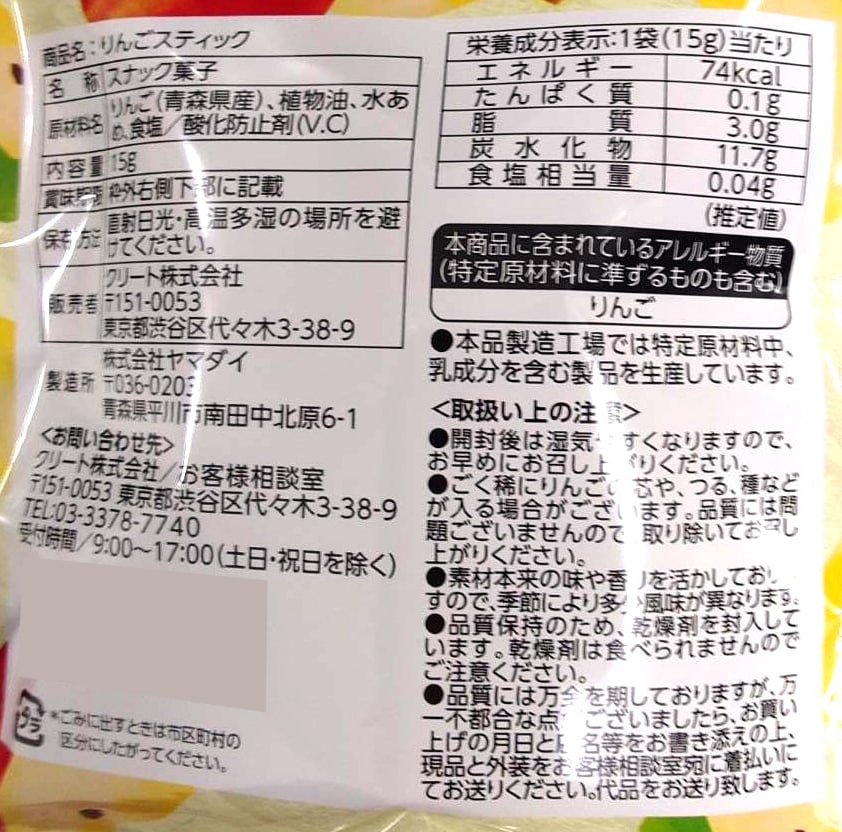 商品名:りんごスティック
名 称 スナック菓子
原材料名 りんご(青森県産)、植物油、水あ
め、食塩/酸化防止剤(V.C)
内容量 15g
賞味期限 枠外右側下部に記載
保存方法 直射日光・高温多湿の場所を避
けてください。
販売者 クリート株式会社
〒151-0053
東京都渋谷区代々木3-38-9
製造所 株式会社ヤマダイ
〒036-0203
青森県平川市南田中北原6-1
<お問い合わせ先>
クリート株式会社/お客様相談室
〒151-0053 東京都渋谷区代々木3-38-9
TEL:03-3378-7740
受付時間/9:00〜17:00(土日・祝日を除く)
プラ
*ごみに出すときは市区町村の
区分にしたがってください。
栄養成分表示:1袋(15g)当たり
エネルギー 74kcal
たんぱく質 0.1g
脂質 3.0g
炭水化物 11.7g
食塩相当量 0.04g
(推定値)
本商品に含まれているアレルギー物質
(特定原材料に準ずるものも含む)
りんご
●本品製造工場では特定原材料中、
乳成分を含む製品を生産しています。
<取扱い上の注意>
●開封後は湿気やすくなりますので、
お早めにお召し上がりください。
●ごく稀にりんごの芯や、つる、種など
が入る場合がございます。品質には問
題ございませんので、取り除いてお召し
上がりください。
●素材本来の味や香りを活かしておりま
すので、季節により多少風味が異なります。
●品質保持のため、乾燥剤を封入して
います。乾燥剤は食べられませんので
ご注意ください。
●品質には万全を期しておりますが、万
一不都合な点がございましたら、お買い
上げの月日と店名等をお書き添えの上、
現品と外装をお客様相談室宛に着払いに
てお送りください。代品をお送り致します。